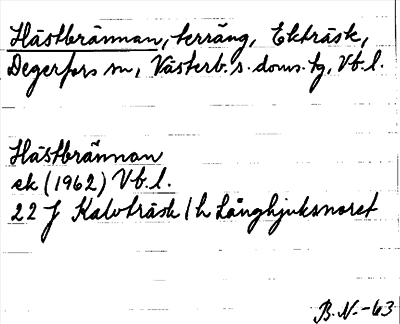 Hästbrännan, terräng, Ekträsk,
Degerfors sn, Västerb. s. doms. tg, Vb. l.
Hästbrännan
ek (1962) Vb. l.
22 J Kalvträsk / h Långhjuksnoret
B. N. -63